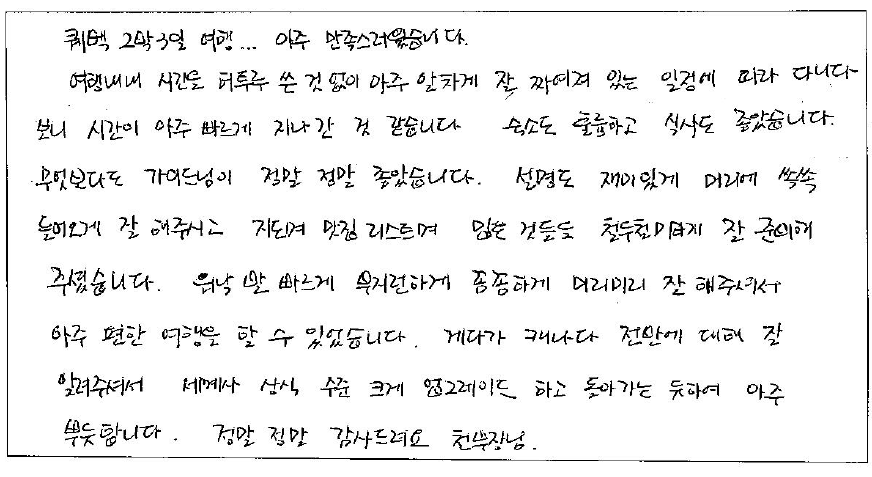 퀘벡 2박3일 여행... 아주 만족스러웠습니다.
여행내내 시간을 허투루 쓴 것 없이 아주 알차게 잘 짜여져 있는 일정에 따라 다니다
보니 시간이 아주 빠르게 지나간 것 같습니다 숙소도 훌륭하고 식사도 좋았습니다.
무엇보다도 가이드님이 정말 정말 좋았습니다. 설명도 재미있게 머리에 쏙쏙
들어오게 잘 해주시고 지도며 맛집 리스트며 많은 것들을 철두철미하게 잘 준비해
주셨습니다. 워낙 발 빠르게 부지런하게 꼼꼼하게 미리미리 잘 해주셔서
아주 편한 여행을 할 수 있었습니다. 게다가 캐나다 전반에 대해 잘
알려주셔서 세계사 상식 수준 크게 업그레이드 하고 돌아가는 듯하여 아주
뿌듯합니다. 정말 정말 감사드려요 천부장님.